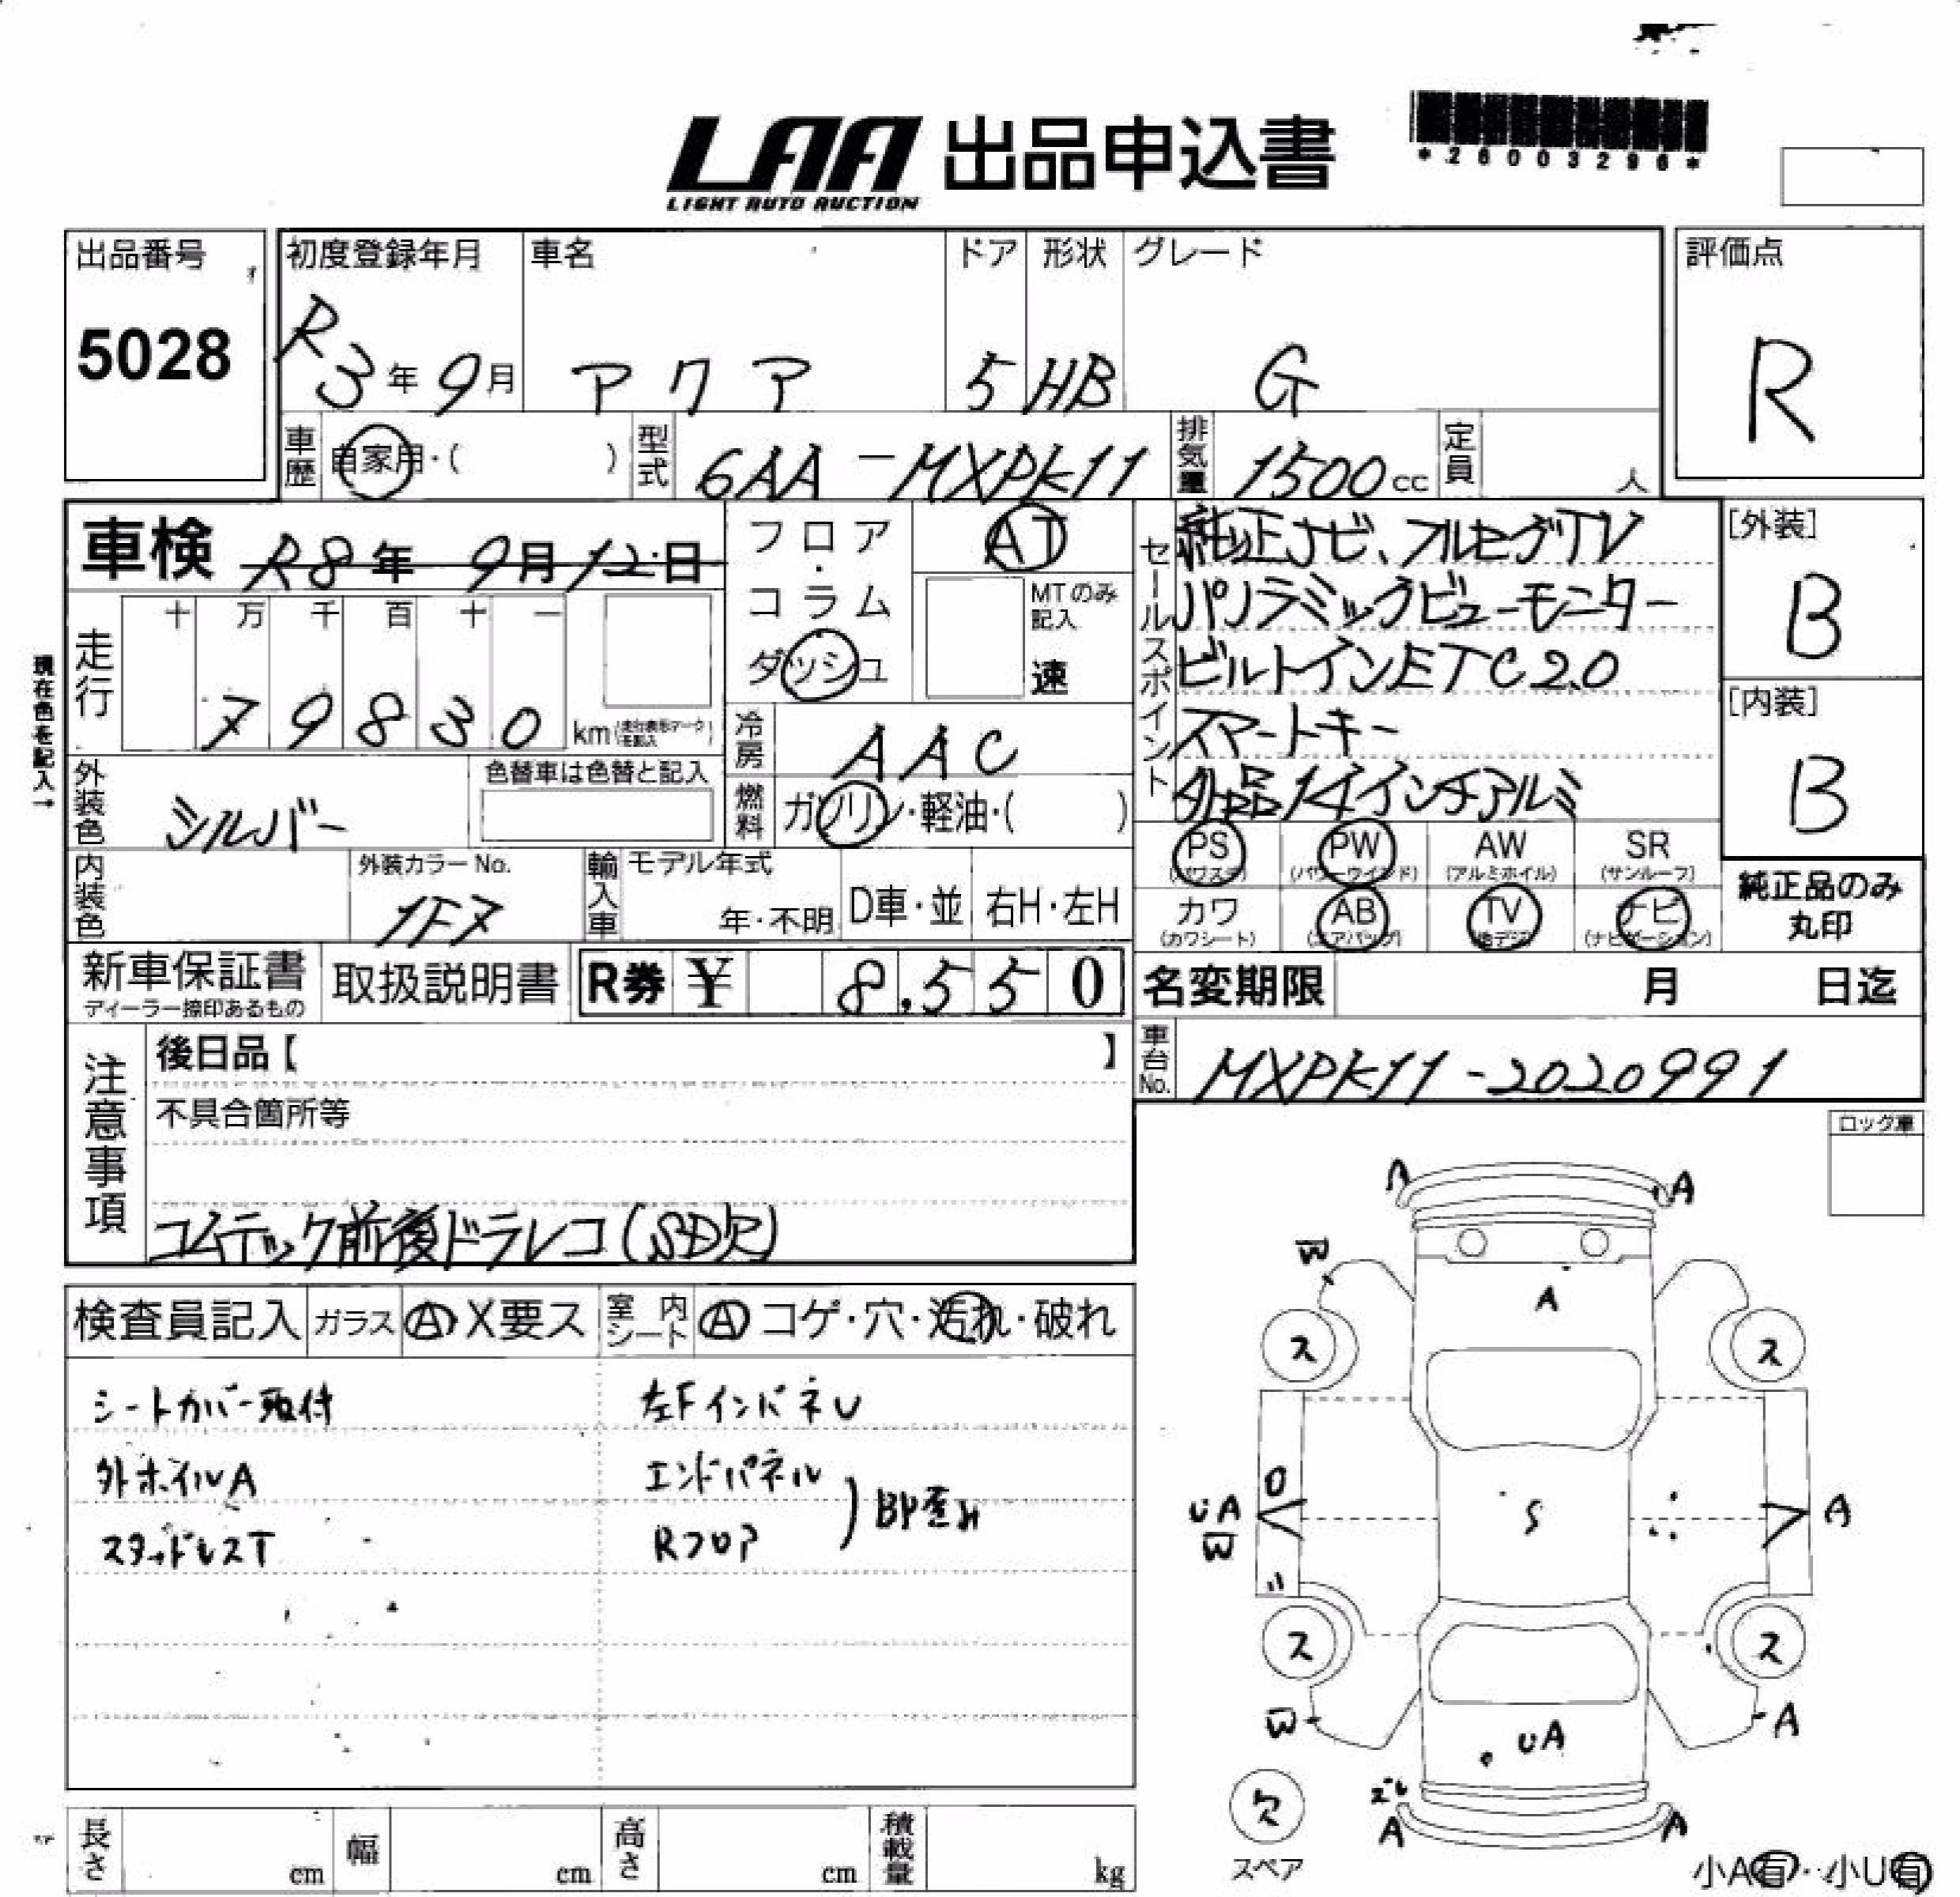 LAA 出品申込書
LIGHT AUTO AUCTION
*26003296*
出品番号
5028
初度登録年月
R3年9月
車名
アクア
ドア
5
形状
HB
グレード
G
評価点
R
車歴
自家用・( )
型式
6AA-MXPK11
排気量
1500cc
定員
人
車検 R8年 9月12日
フロア・コラム
ダッシュ
AT
MTのみ記入
速
セールスポイント
純正ナビ、フルセグTV
パノラミックビューモニター
ビルトインETC2.0
スマートキー
外品14インチアルミ
[外装]
B
[内装]
B
現在色を記入→
走行
十 万 千 百 十 一
79830 km
冷房
AAC
外装色
シルバー
色替車は色替と記入
燃料
ガソリン・軽油・( )
PS
(パワステ)
PW
(パワーウインド)
AW
(アルミホイル)
SR
(サンルーフ)
カワ
(カワシート)
AB
(エアバッグ)
TV
(地デジ)
ナビ
(ナビゲーション)
純正品のみ
丸印
内装色
外装カラーNo.
1F7
輸入車
モデル年式
年・不明
D車・並
右H・左H
新車保証書
ディーラー捺印あるもの
取扱説明書
R券 ¥ 8,550
名変期限 月 日迄
車台No.
MXPK11-2020991
注意事項
後日品【 】
不具合箇所等
コムテック前後ドラレコ(SD欠)
ロック車
検査員記入
ガラス
A X要ス
室内シート
A コゲ・穴・汚れ・破れ
シートカバー取付
外ホイルA
スタッドレスT
左Fインパネル
エンドパネル
Rフロア
BP歪み
A A
W
A
ス ス
UA
W
S
A
ス ス
W
A
UA
ズレ
A A
欠
スペア
小A有・小U有
長さ cm
幅 cm
高さ cm
積載量 kg